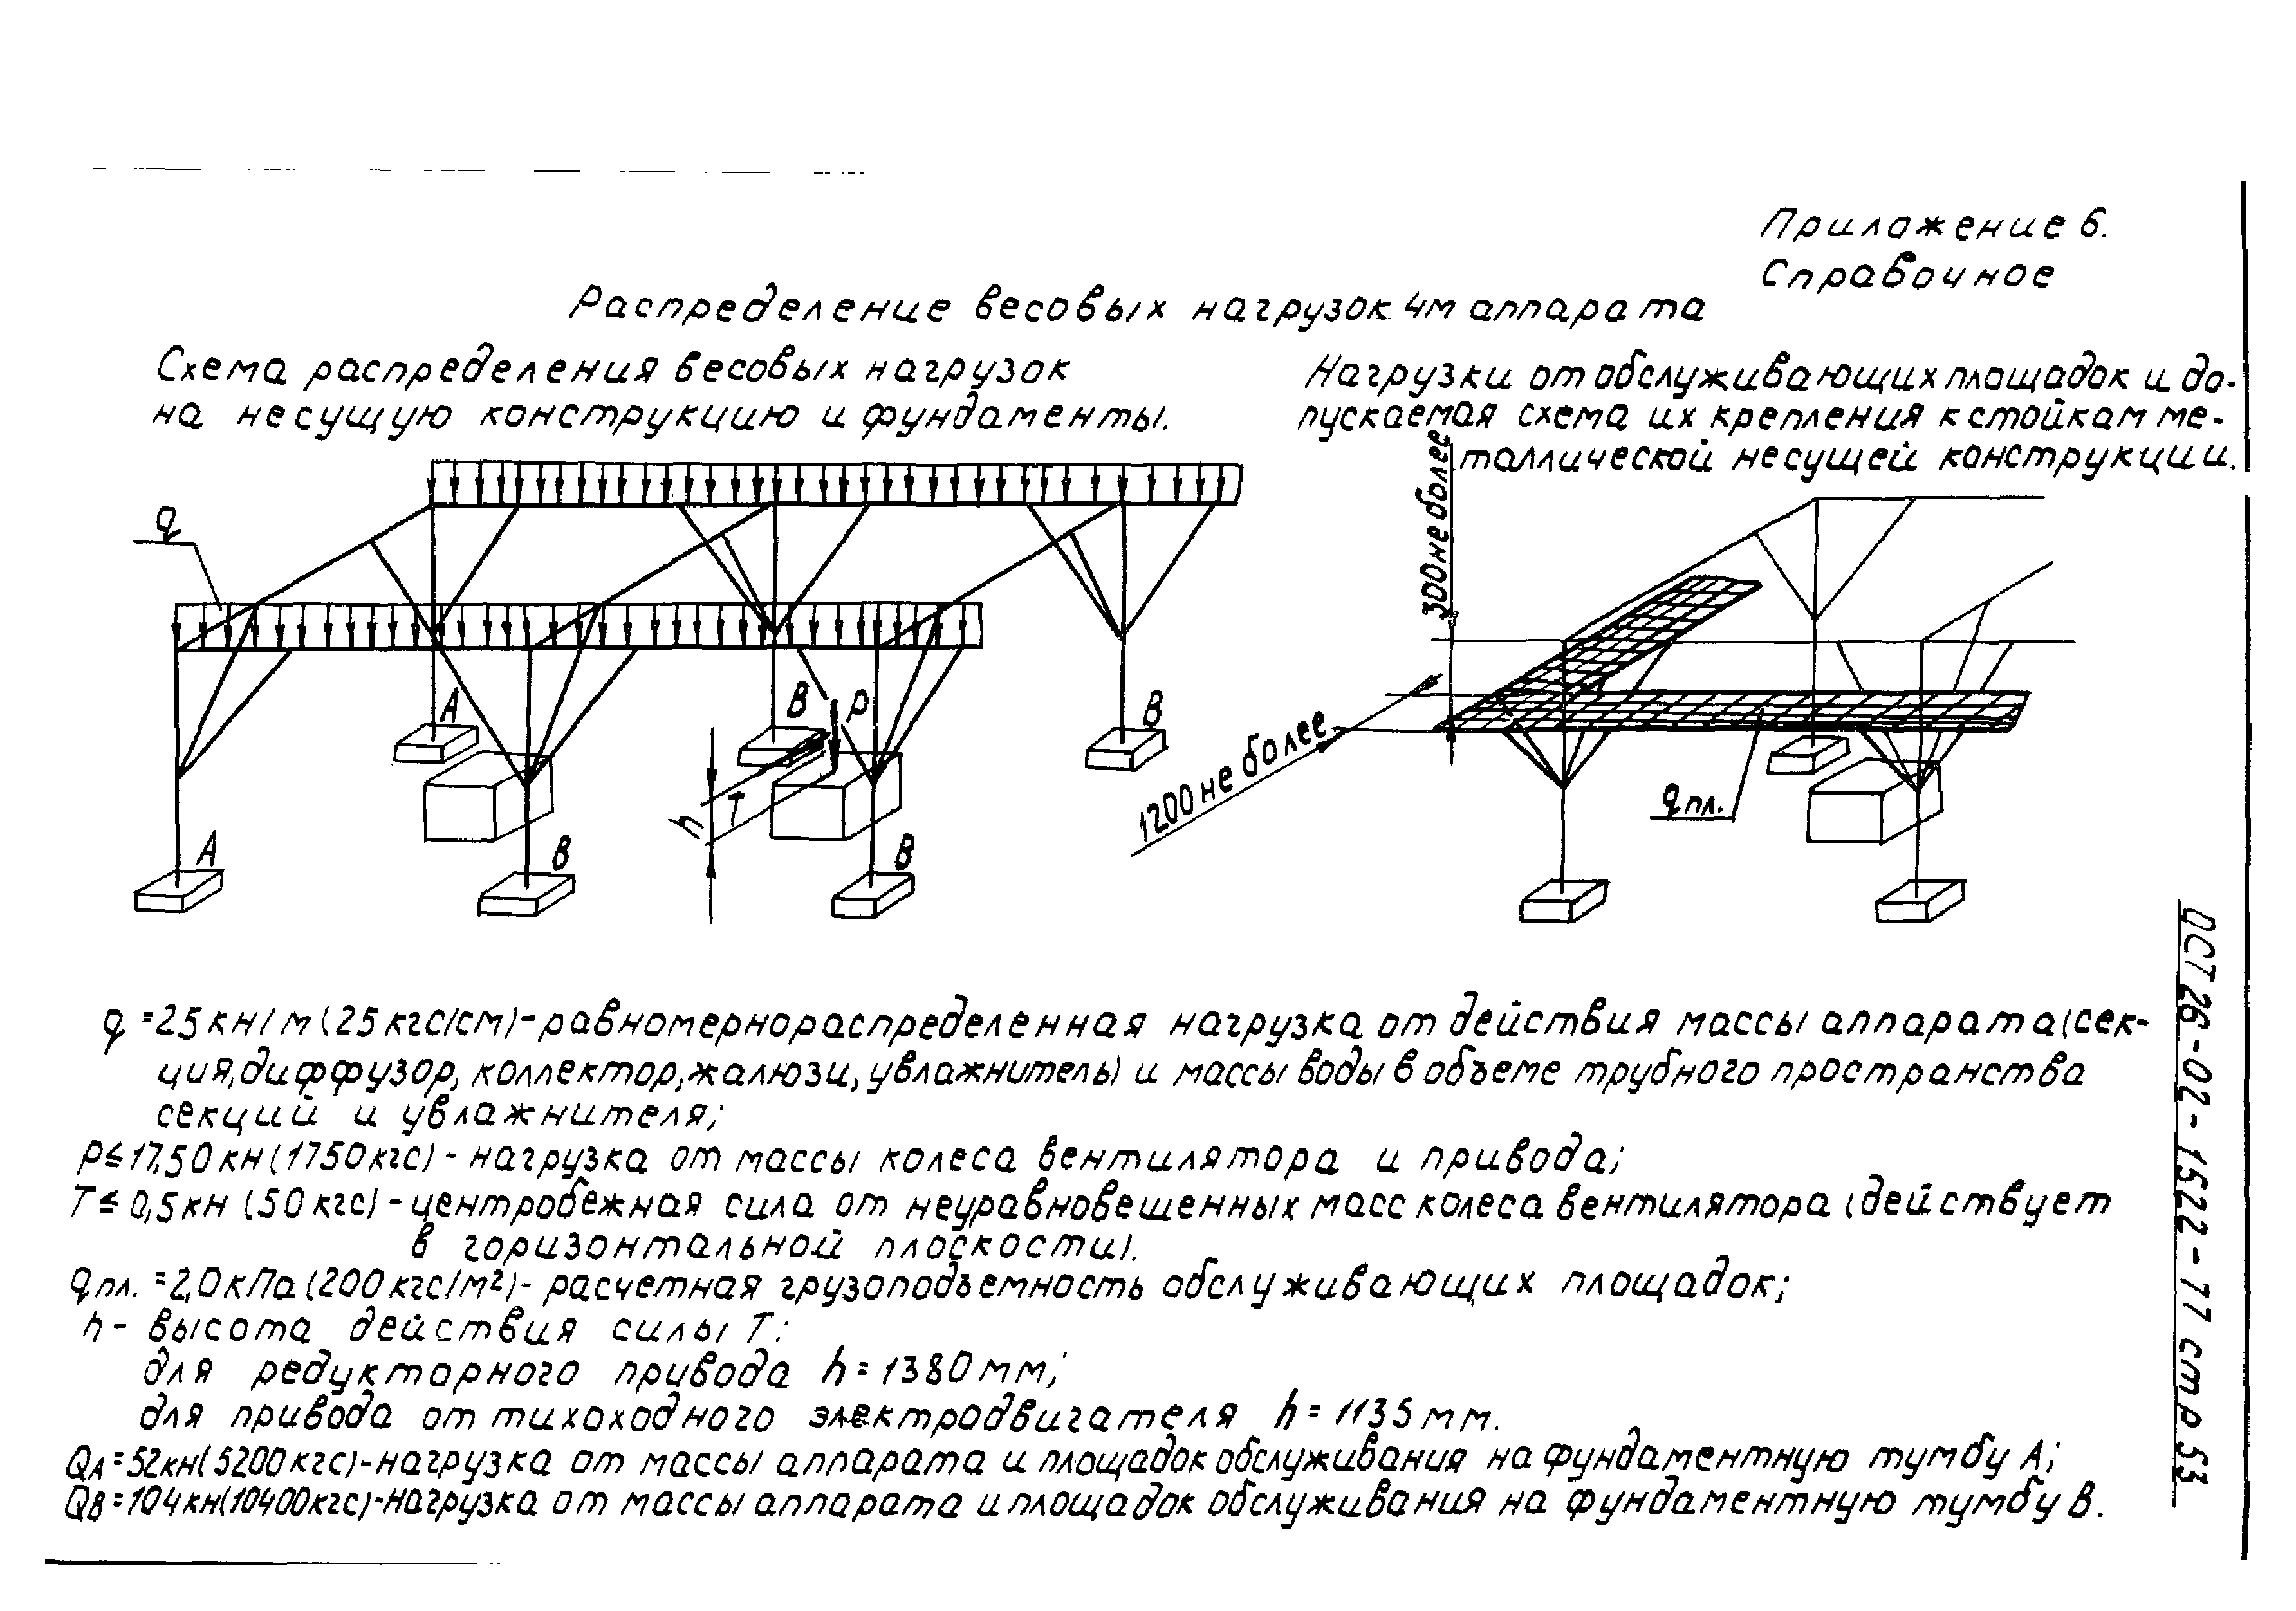 Приложение 6.
Справочное
Распределение весовых нагрузок 4м аппарата
Схема распределения весовых нагрузок
на несущую конструкцию и фундаменты.
Нагрузки от обслуживающих площадок и до-
пускаемая схема их крепления к стойкам ме-
таллической несущей конструкции.
q
A
B
P
B
h
T
A
B
B
300 не более
1200 не более
qпл.
q = 25 кн/м (25 кгс/см) - равномернораспределенная нагрузка от действия массы аппарата (сек-
ция, диффузор, коллектор, жалюзи, увлажнитель) и массы воды в объеме трубного пространства
секций и увлажнителя;
P ≤ 17,50 кн (1750 кгс) - нагрузка от массы колеса вентилятора и привода;
T ≤ 0,5 кн (50 кгс) - центробежная сила от неуравновешенных масс колеса вентилятора (действует
в горизонтальной плоскости).
qпл. = 2,0 кПа (200 кгс/м²) - расчетная грузоподъемность обслуживающих площадок;
h - высота действия силы T:
для редукторного привода h = 1380 мм;
для привода от тихоходного электродвигателя h = 1135 мм.
QA = 52 кн (5200 кгс) - нагрузка от массы аппарата и площадок обслуживания на фундаментную тумбу А;
QB = 104 кн (10400 кгс) - нагрузка от массы аппарата и площадок обслуживания на фундаментную тумбу В.
ОСТ 26-02-1522-77 стр 53